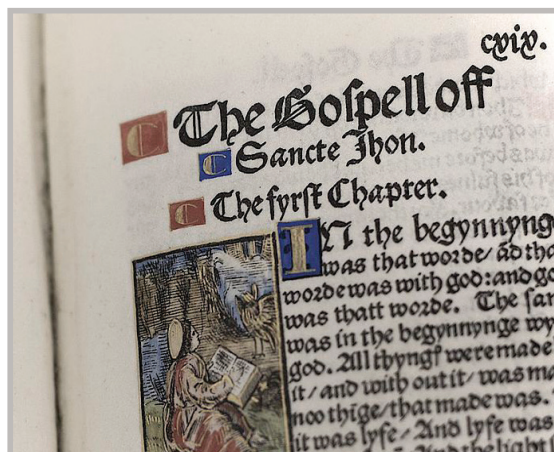 cxix.
The Gospell off
Sancte Jhon.
The fyrst Chapter.
IN the begynnynge
was that worde/ ād tha
worde was with god: and go
was thatt worde. The sam
was in the begynnynge wy
god. All thyngſ were made
it/ and with out it/ was ma
noo thige/ that made was.
it was lyfe/ And lyfe was
And the light